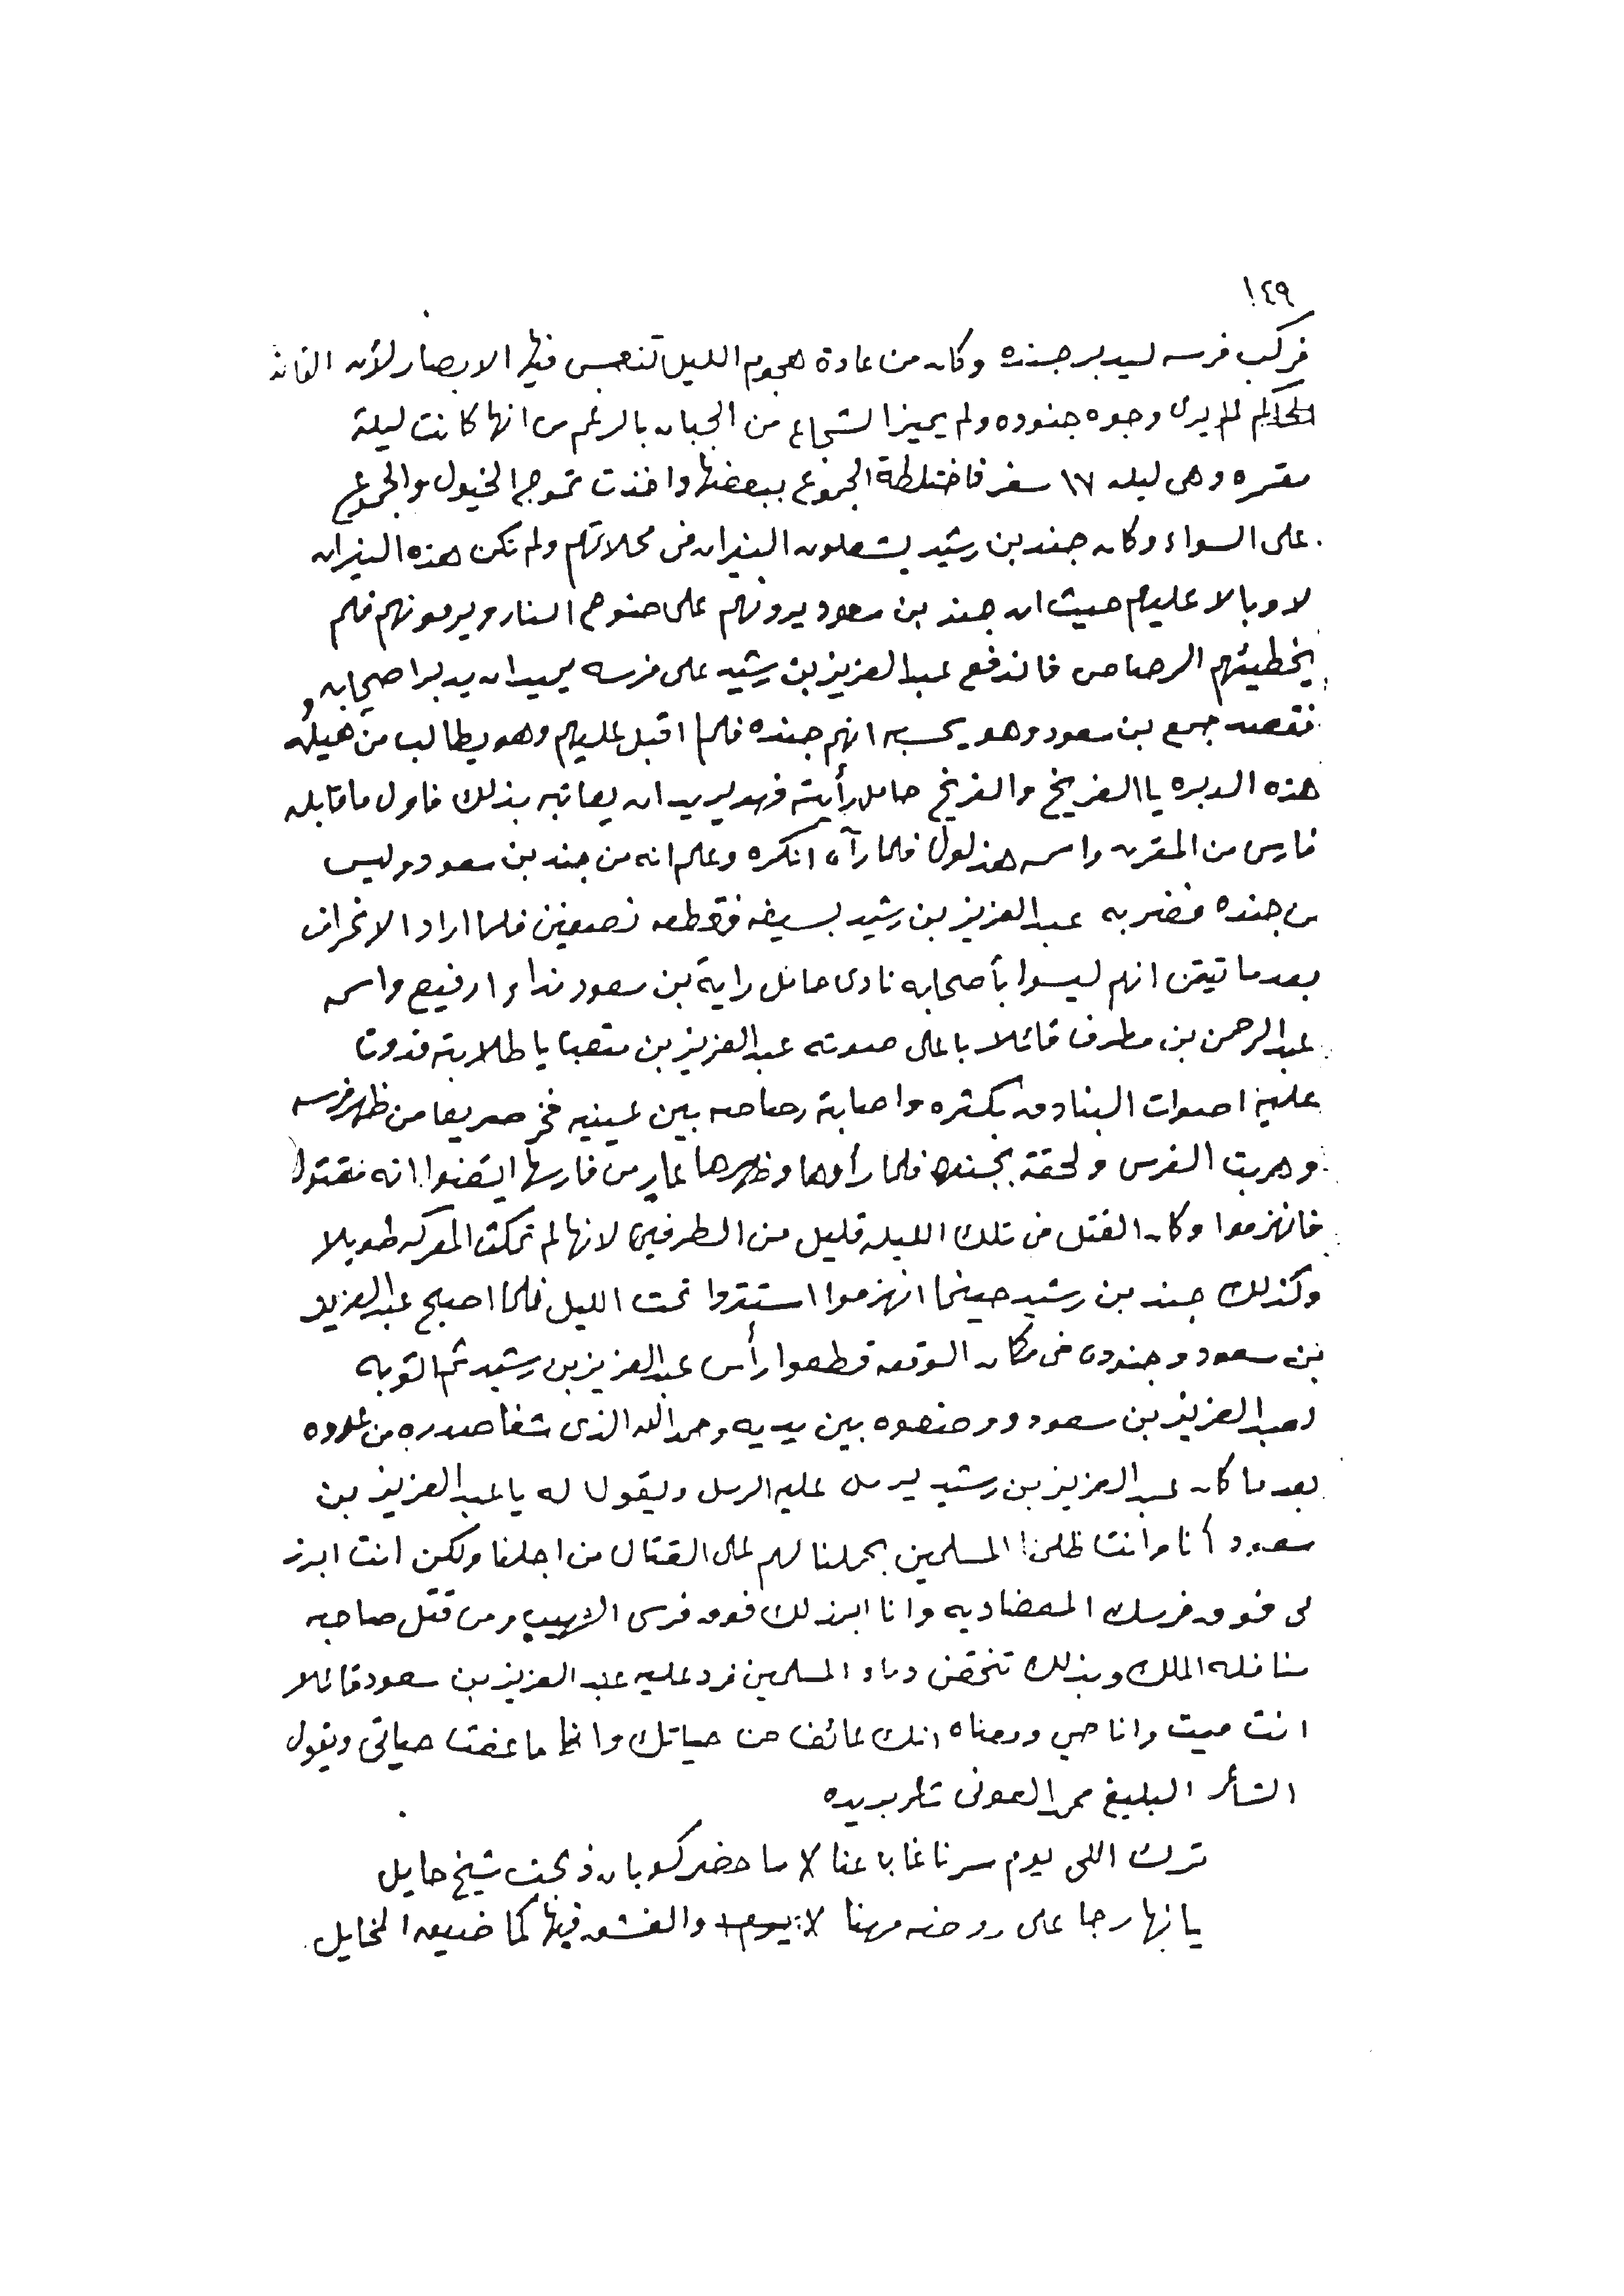 ١٤٩
فركب فرسه ليدبر جنده وكان من عادة هجوم الليل تنعبس فيها الابصار لأن القائد
الحاكم لم يرى وجوه جنوده ولم يميز الشجاع من الجبان بالرغم من انها كانت ليلة
مقمره وهى ليلة ١٧ سفر فاختلطة الجموع ببعضها واخذت تموج الخيول والجموع
على السواء وكان جند بن رشيد يشعلون النيران فى محلاتهم ولم تكن هذه النيران
الا وبالا عليهم حيث ان جند بن سعود يرونهم على ضوء النار ويرمونهم فلم
يخطيئهم الرصاص فاندفع عبد العزيز بن رشيد على فرسه يريد ان يدبر اصحابه
فقصد جمع بن سعود وهو يحسبه انهم جنده فلما اقبل عليهم وهو يطالب من هيله
هذه الدبره يا الفريخ والفريخ حامل رأيته فهو يريد ان يعاتبه بذلك فاول ما قابله
فارس من المقرن واسمه هذلول فلما رآه انكره وعلم انه من جند بن سعود وليس
من جنده فضربه عبد العزيز بن رشيد بسيفه فقطعه نصفين فلما اراد الانحراف
بعدما تيقن انهم ليسوا بأصحابه نادى حامل راية بن سعود نداءا رفيع واسمه
عبد الرحمن بن مطرف قائلا باعلى صوته عبد العزيز بن متعبا يا طلابته فدوت
عليه اصوات البنادق بكثره واصابة رصاصه بين عينيه فخر صريعا من ظهر فرسه
وهربت الفرس ولحقة بجنده فلما رأوها وظهرها عار من فارسها ايقنوا انه مقتول
فانهزموا وكان القتل فى تلك الليله قليل من الطرفين لانها لم تمكث المعركه طويلا
وكذلك جند بن رشيد حينما انهزموا استتروا تحت الليل فلما اصبح عبد العزيز
بن سعود وجنوده فى مكان الوقعه قطعوا رأس عبد العزيز بن رشيد ثم اتو به
لعبد العزيز بن سعود ووضعوه بين يديه وحمد الله الذى شفا صدوره من عدوه
بعد ما كان عبد العزيز بن رشيد يرسل عليه الرسل ويقول له يا عبد العزيز بن
سعود أنا وانت ظلمنا المسلمين بحملنا لهم على القتال من اجلنا ولكن انت ابرز
لى فوق فرسك المعضاديه وانا ابرز لك فوق فرسى الشهيب ومن قتل صاحبه
منا فله الملك وبذلك تنحقن دماء المسلمين فرد عليه عبد العزيز بن سعود قائلا
انت ميت وانا حي ومعناه انك عائف من حياتك وانا ما عفت حياتى ويقول
الشاعر البليغ محمد العونى شاعر بريده
ترك اللى يوم سرنا غابا عنا لا ما حضر كوبان ذبحت شيخ حايل
يا نهار جا على روضة مهنا لا والفشق فيها كما ضيعه المخايل